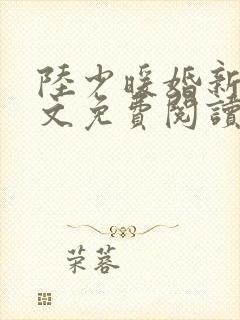 陸少暖婚新
文免費閱讀
荣蓉